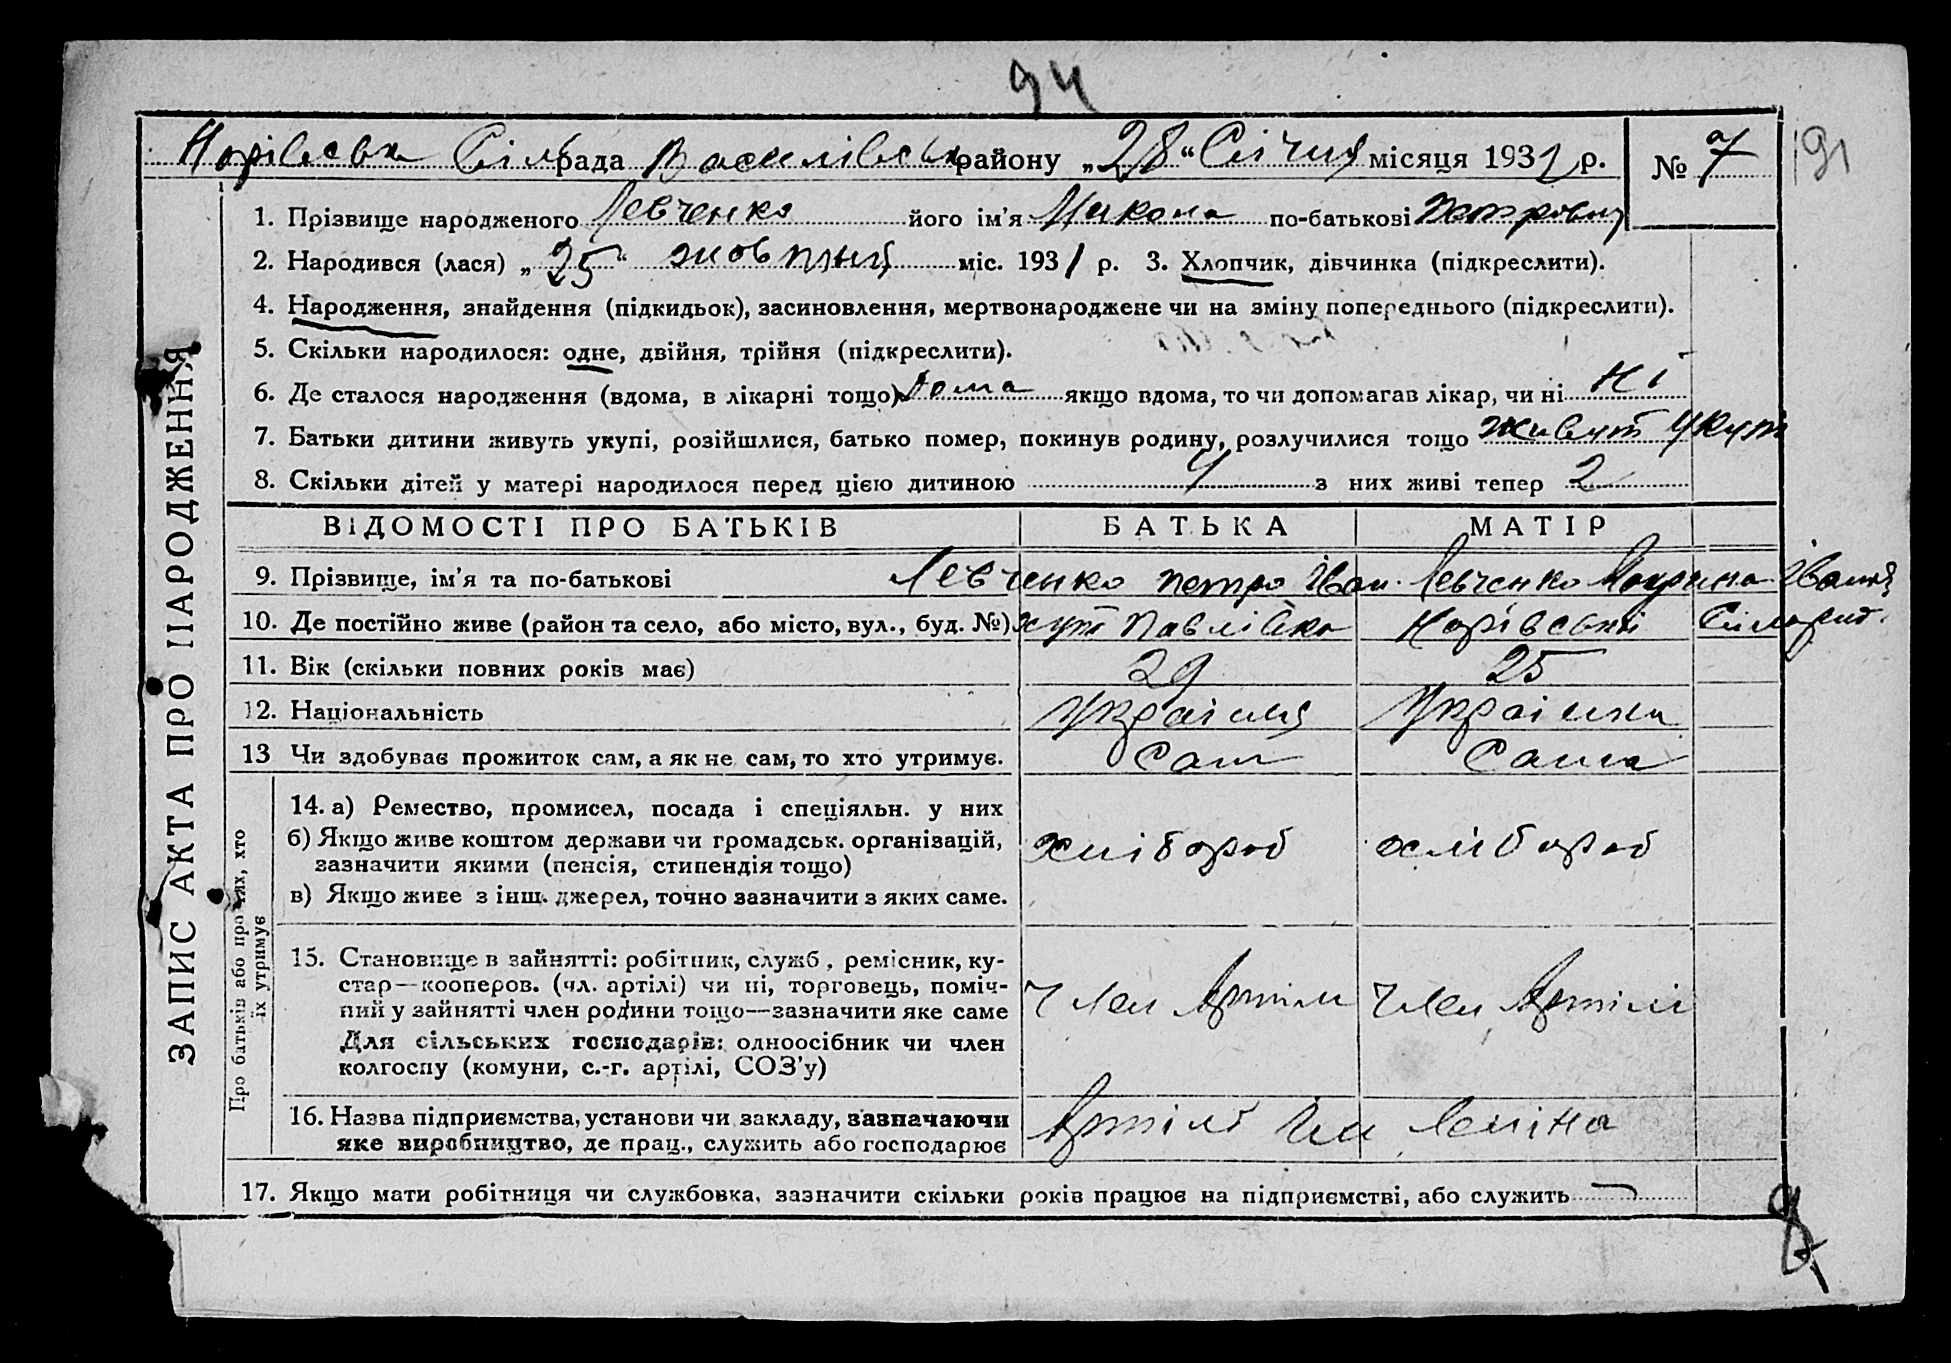 94
Норівська Сільрада Василівськ району „28“ Січня місяця 1932 р. № 7
191
1. Прізвище народженого Левченко його ім’я Микола по-батькові Петрович
2. Народився (лася) „25“ жовтня міс. 1931 р. 3. Хлопчик, дівчинка (підкреслити).
4. Народження, знайдення (підкидьок), засиновлення, мертвонароджене чи на зміну попереднього (підкреслити).
5. Скільки народилося: одне, двійня, трійня (підкреслити).
6. Де сталося народження (вдома, в лікарні тощо) Дома якщо вдома, то чи допомагав лікар, чи ні Ні
7. Батьки дитини живуть укупі, розійшлися, батько помер, покинув родину, розлучилися тощо живут укупі
8. Скільки дітей у матері народилося перед цією дитиною 4 з них живі тепер 2
ЗАПИС АКТА ПРО НАРОДЖЕННЯ
ВІДОМОСТІ ПРО БАТЬКІВ БАТЬКА МАТІР
9. Прізвище, ім’я та по-батькові Левченко Петро Іван. Левченко Іванів
10. Де постійно живе (район та село, або місто, вул., буд. №) хут Павлівка Норівські
11. Вік (скільки повних років має) 29 25
12. Національність Україець Українка
13 Чи здобуває прожиток сам, а як не сам, то хто утримує. Сам Сама
Про батьків або про тих, хто їх утримує
14. а) Ремество, промисел, посада і спеціяльн. у них
б) Якщо живе коштом держави чи громадськ. організацій,
зазначити якими (пенсія, стипендія тощо) хлібороб хлібороб
в) Якщо живе з інш. джерел, точно зазначити з яких саме.
15. Становище в зайнятті: робітник, служб, ремісник, ку-
стар—кооперов. (чл. артілі) чи ні, торговець, поміч-
ний у зайнятті член родини тощо—зазначити яке саме Член Артіли Член Артілі
Для сільських господарів: одноосібник чи член
колгоспу (комуни, с.-г. артілі, СОЗ’у)
16. Назва підприємства, установи чи закладу, зазначаючи
яке виробництво, де прац., служить або господарює Артіль Ім Леніна
17. Якщо мати робітниця чи службовка, зазначити скільки років працює на підприємстві, або служить —